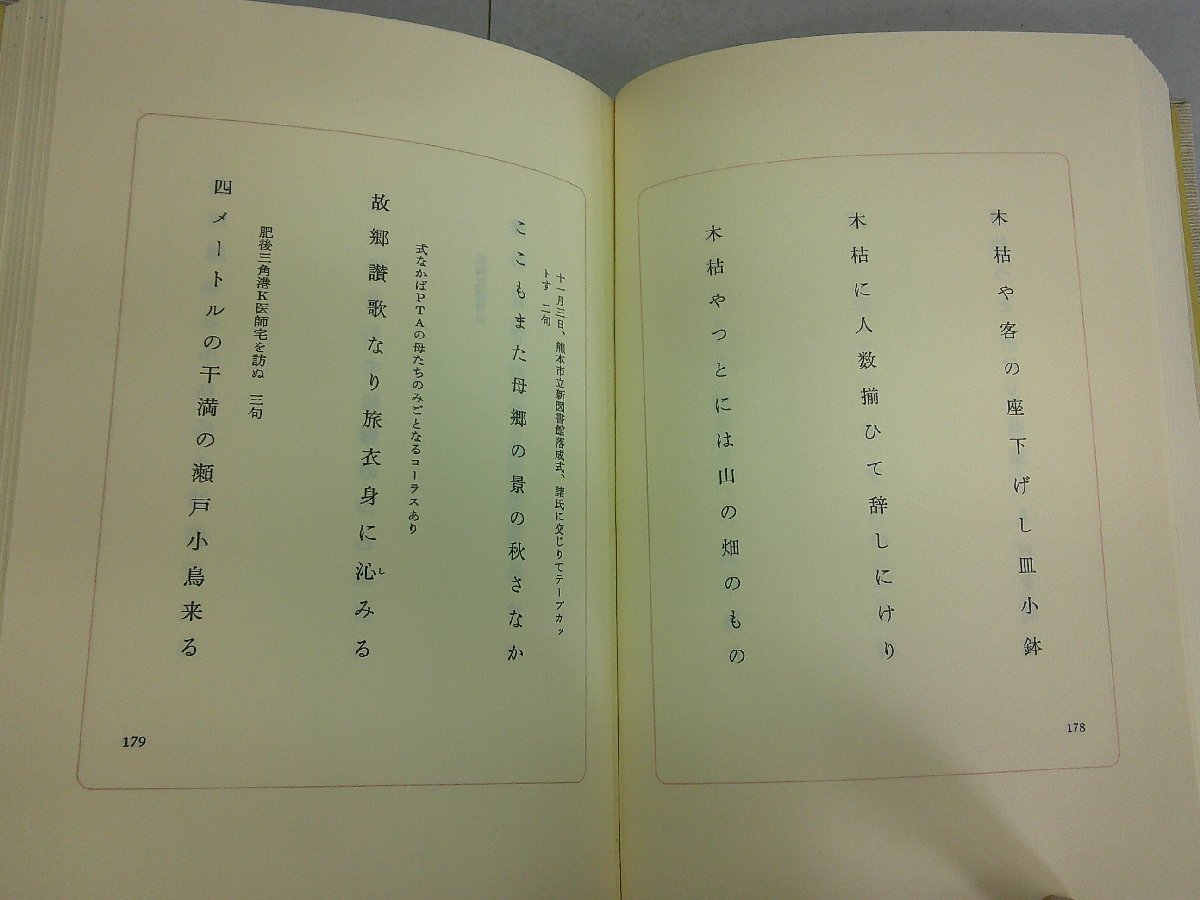 木枯や客の座下げし皿小鉢
木枯に人数揃ひて辞しにけり
木枯やつとには山の畑のもの
178
十一月三日、熊本市立新図書館落成式、諸氏に交じりてテープカッ
トす 二句
ここもまた母郷の景の秋さなか
式なかばPTAの母たちのみごとなるコーラスあり
故郷讃歌なり旅衣身に沁みる
し
肥後三角港K医師宅を訪ぬ 三句
四メートルの干満の瀬戸小鳥来る
179